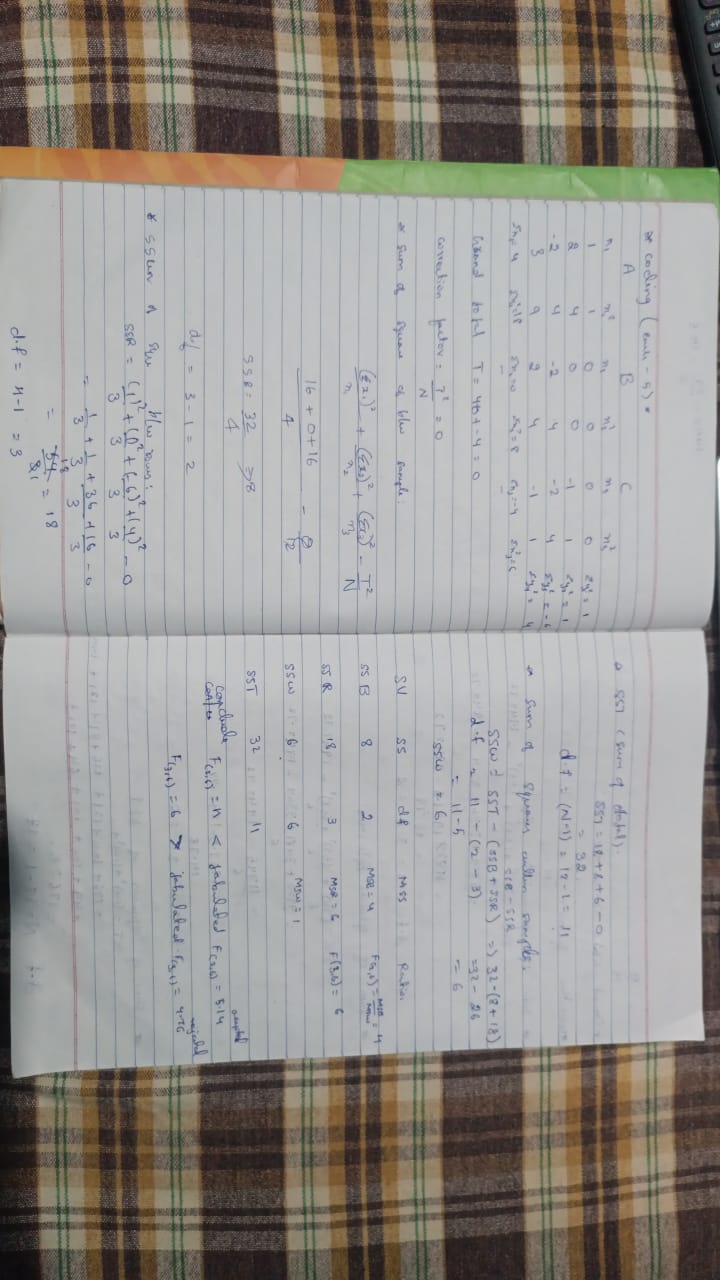 * coding (each - 5) *
A B C
x₁ x₁² x₂ x₂² x₃ x₃²
1 1 0 0 0 0 Σy₁ = 1
2 4 0 0 -1 1 Σy₂ = 1
-2 4 -2 4 -2 4 Σy₃ = -6
3 9 2 4 -1 1 Σy₄ = 4
Σx₁ = 4 Σx₁² = 18 Σx₂ = 0 Σx₂² = 8 Σx₃ = -4 Σx₃² = 6
Grand total T = 4 + 0 + -4 = 0
correction factor = T²/N = 0
* sum of square of b/w sample:
(Σx₁)²/n₁ + (Σx₂)²/n₂ + (Σx₃)²/n₃ - T²/N
16 + 0 + 16 / 4 - 0/12
SSB = 32/4 => 8
df = 3 - 1 = 2
b/w rows:
SSR = (1)²/3 + (1)²/3 + (-6)²/3 + (4)²/3 - 0
= 1/3 + 1/3 + 36/3 + 16/3 - 0
= 54/3 = 18
d.f = 4-1 = 3
* SST (sum of total).
SST = 18 + 8 + 6 - 0
= 32
d.f = (N-1) = 12-1 = 11
* sum of square within samples.
SSB - SSR
SSW = SST - (SSB + SSR) => 32 - (8 + 18)
d.f = 11 - (2 - 3) = 32 - 26
= 11 - 5 = 6
SSW = 6
SV SS df MSS Ratio
SSB 8 2 MSB = 4 F(2,6) = MSB/MSW = 4
SSR 18 3 MSR = 6 F(3,6) = 6
SSW 6 6 MSW = 1
SST 32 11
Conclude F(2,6) = 4 < tabulated F(2,6) = 5.14 accepted
F(3,6) = 6 > tabulated F(3,6) = 4.76 rejected